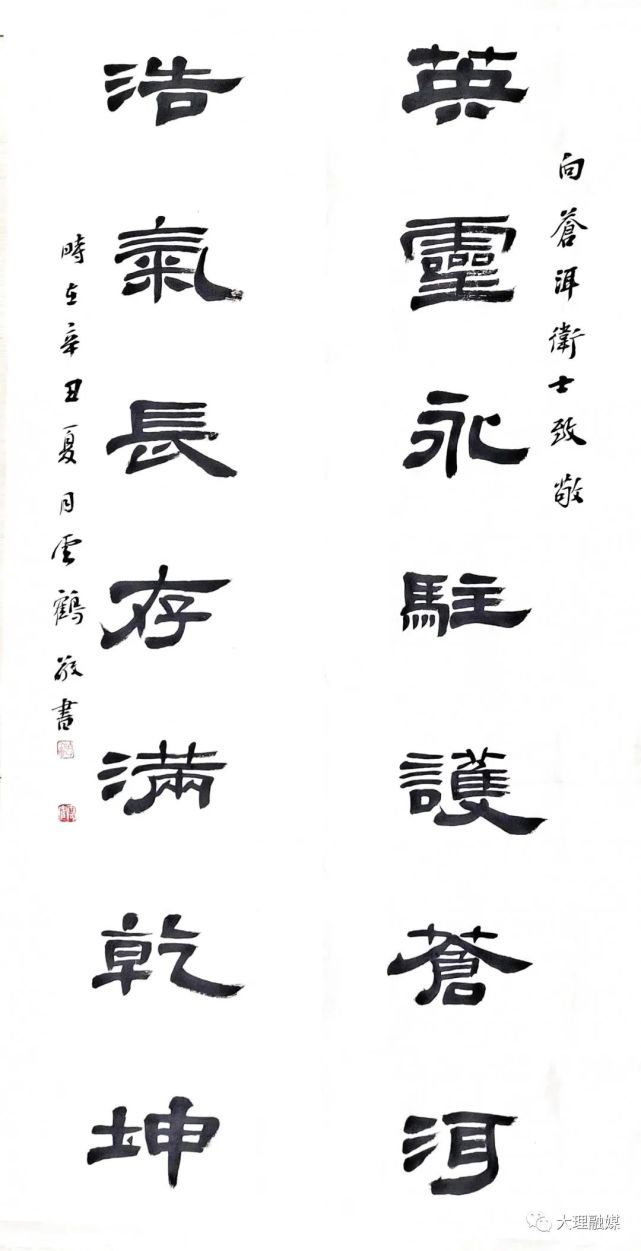 向蒼洱衛士致敬
英靈永駐護蒼洱
浩氣長存滿乾坤
時在辛丑夏月雲鶴敬書
大理融媒